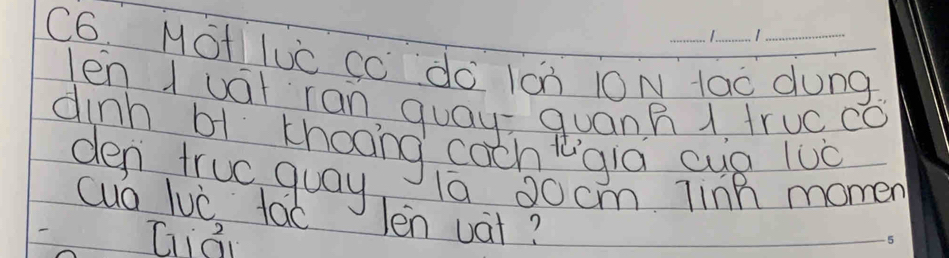 ......../......../................
C6 Một lực có độ lớn 10N tác dụng
lên 1 vật rắn quay quanh 1 trục cố
định bt khoảng cách từ giá của lực
đến trục quay là 20cm. Tính momen
của lực tác lên vật?
Giải
5